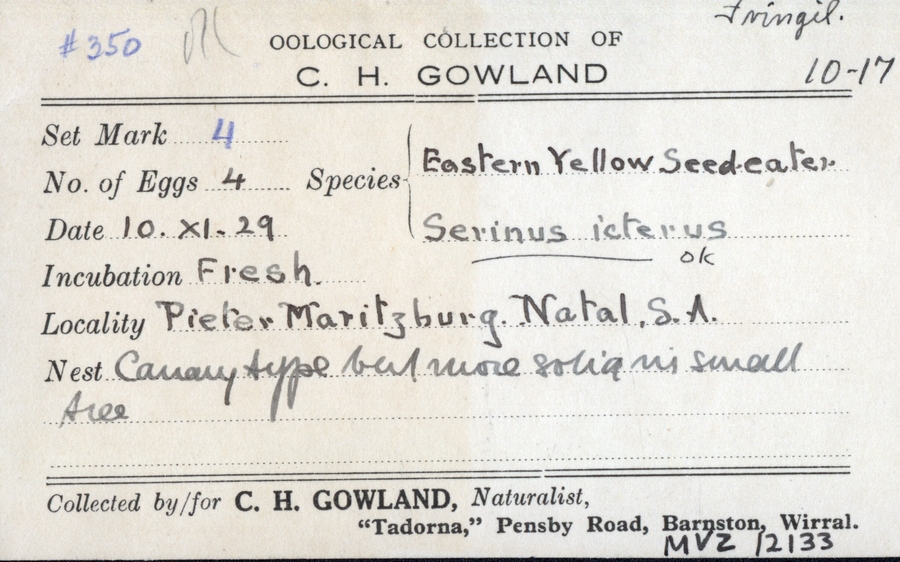 #350 OOLOGICAL COLLECTION OF Fringil.
C. H. GOWLAND 10-17
Set Mark 4
No. of Eggs 4 Species Eastern Yellow Seed-eater.
Date 10. XI. 29 Serinus icterus
ok
Incubation Fresh.
Locality Pieter Maritzburg. Natal, S.A.
Nest Canary type but more solid in small
tree
Collected by/for C. H. GOWLAND, Naturalist,
"Tadorna," Pensby Road, Barnston, Wirral.
MVZ 12133